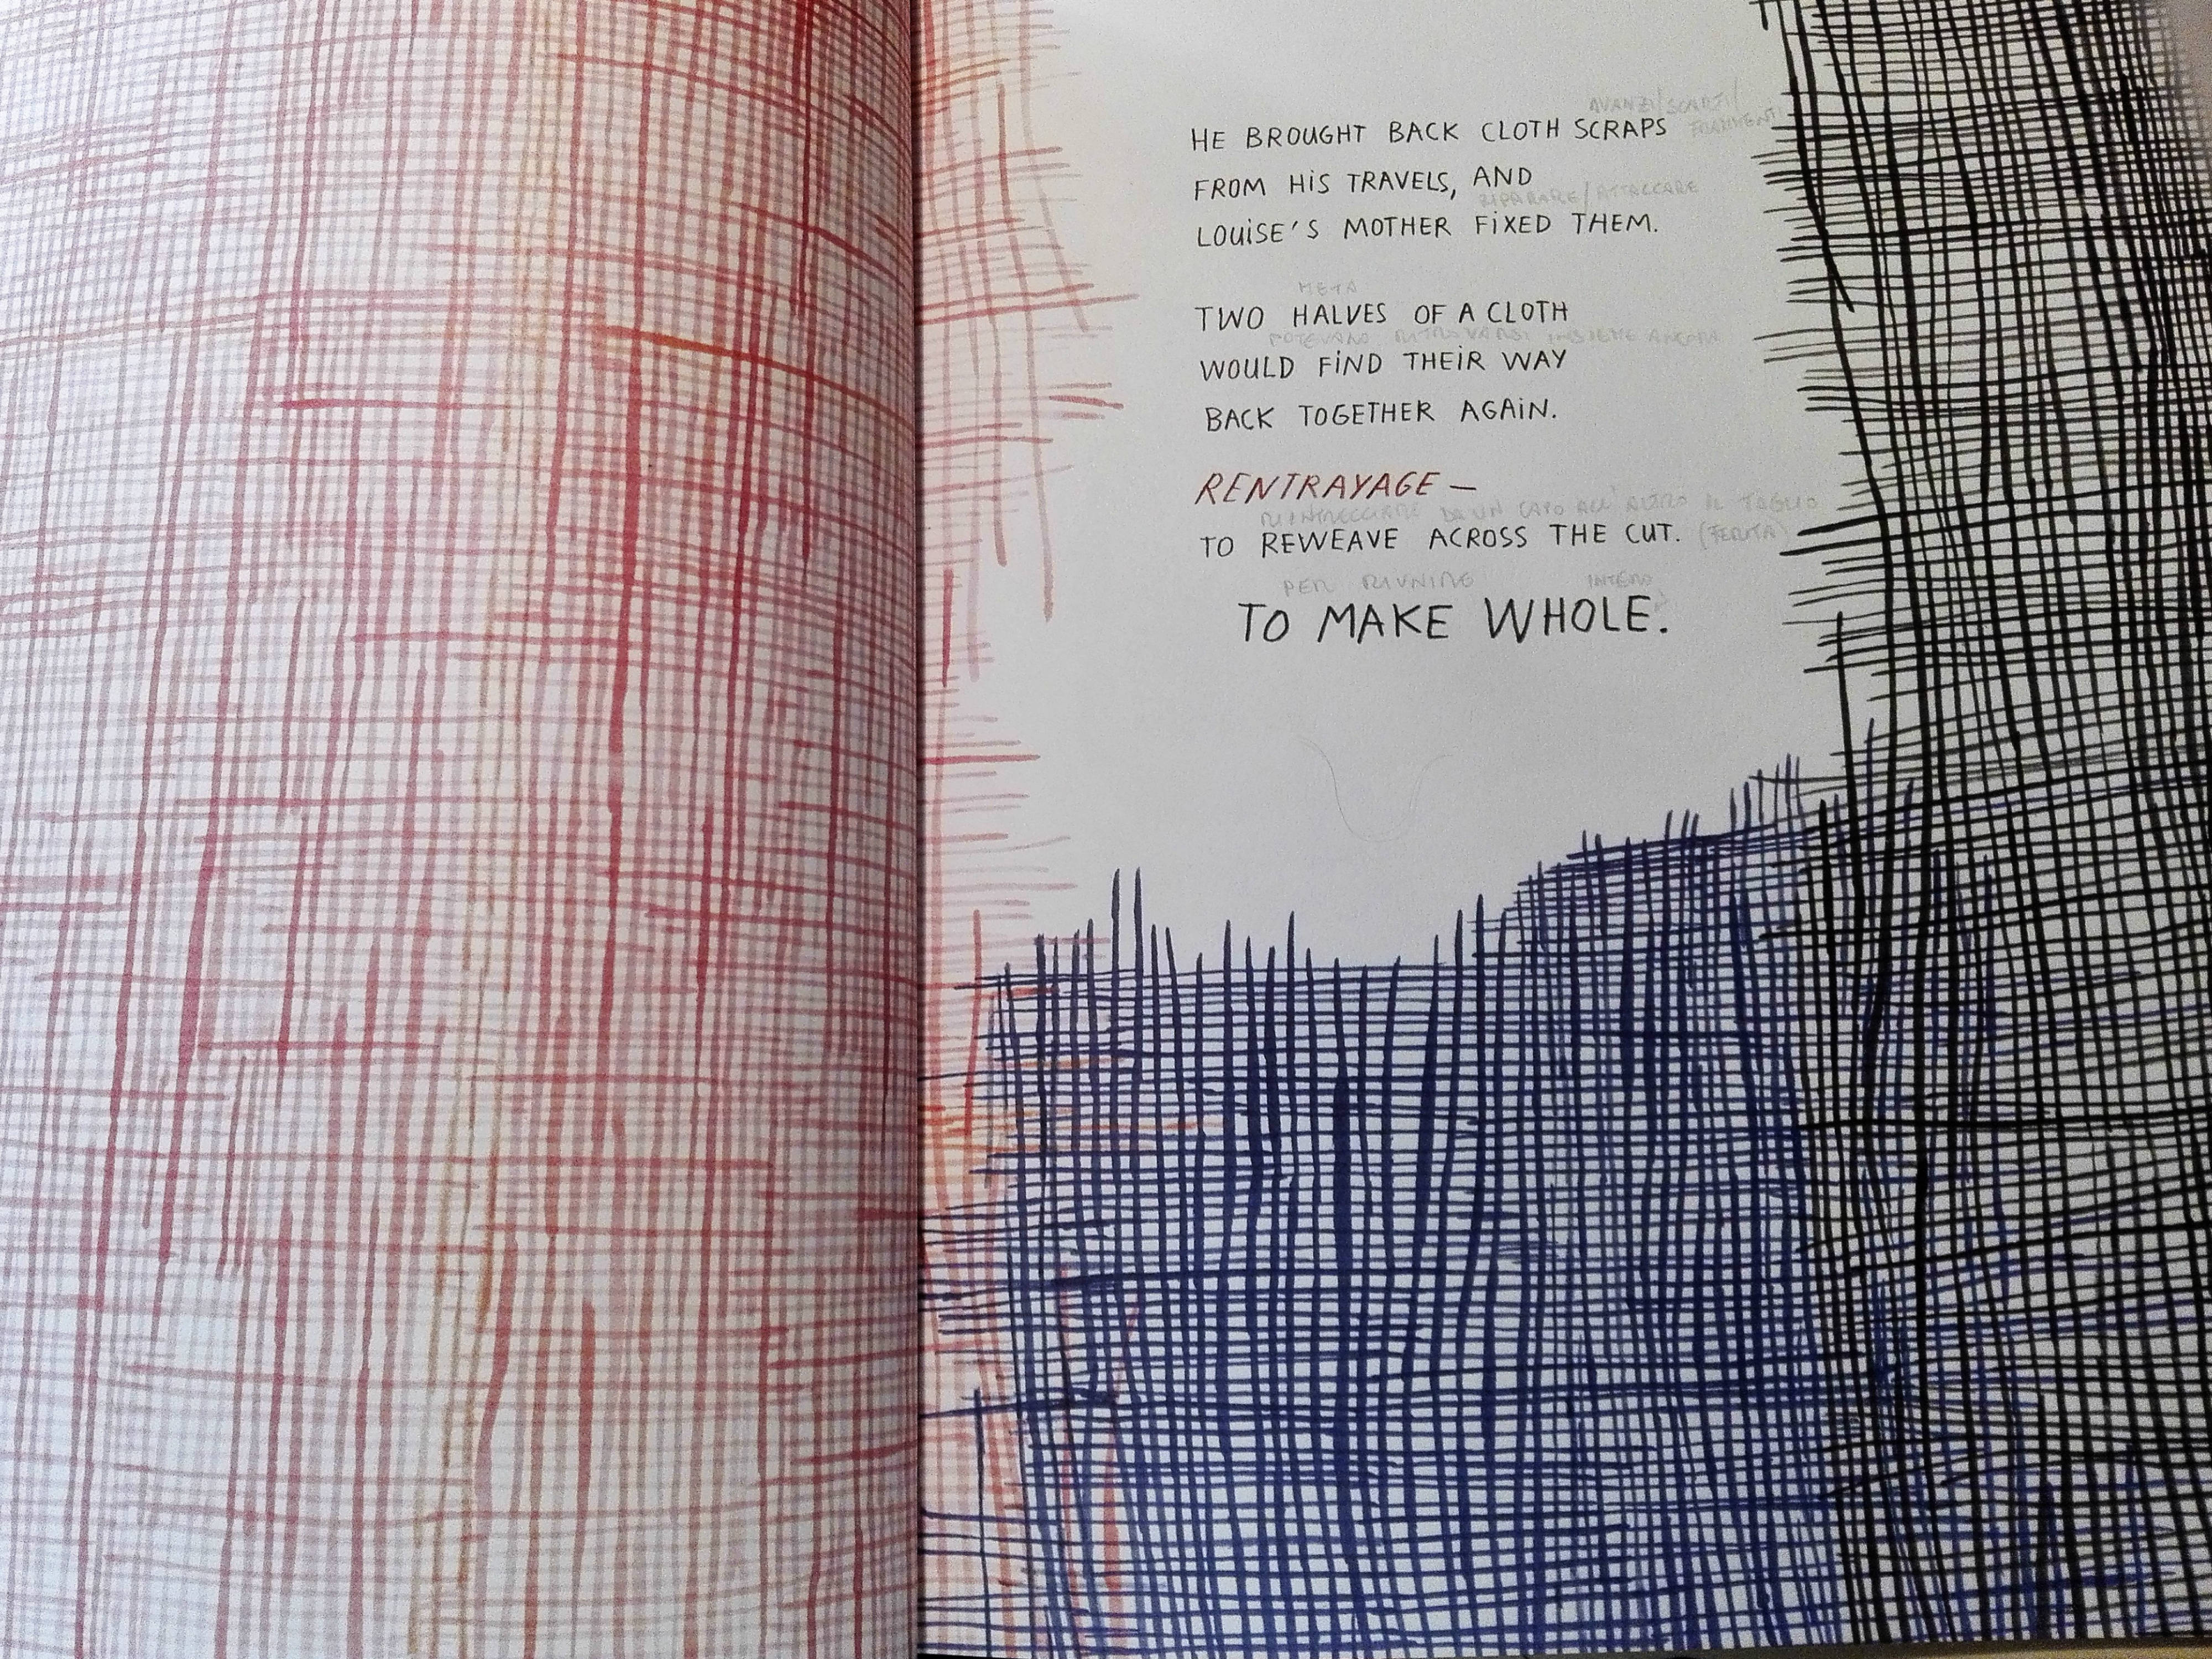 AVANZI/SCARTI/
FRAMMENTI
HE BROUGHT BACK CLOTH SCRAPS
FROM HiS TRAVELS, AND
RIPARARE/ATTACCARE
LOUiSE'S MOTHER FiXED THEM.
META
TWO HALVES OF A CLOTH
POTEVANO RITROVARSI INSIEME ANCORA
WOULD FiND THEiR WAY
BACK TOGETHER AGAiN.
RENTRAYAGE —
RINTRECCIARE DA UN CAPO ALL'ALTRO IL TAGLIO
TO REWEAVE ACROSS THE CUT. (FERITA)
PER RIUNIRE INTERO
TO MAKE WHOLE.